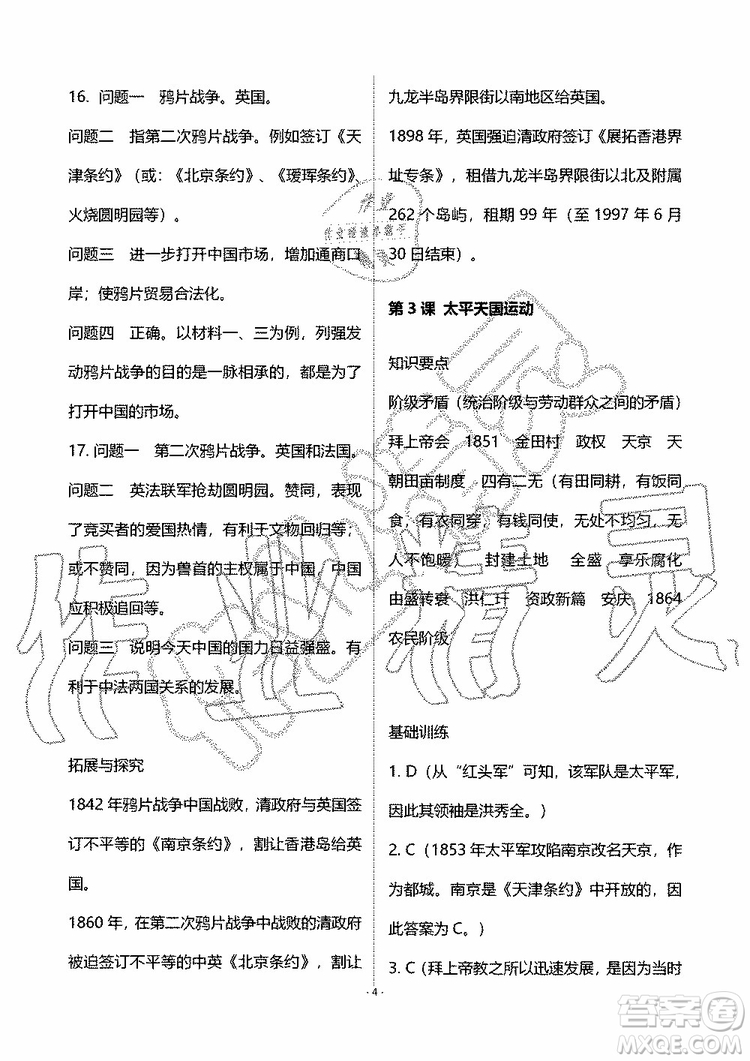 16. 问题一 鸦片战争。英国。
问题二 指第二次鸦片战争。例如签订《天
津条约》（或：《北京条约》、《瑷珲条约》、
火烧圆明园等）。
问题三 进一步打开中国市场，增加通商口
岸；使鸦片贸易合法化。
问题四 正确。以材料一、三为例，列强发
动鸦片战争的目的是一脉相承的，都是为了
打开中国的市场。
17. 问题一 第二次鸦片战争。英国和法国。
问题二 英法联军抢劫圆明园。赞同，表现
了竞买者的爱国热情，有利于文物回归等；
或不赞同，因为兽首的主权属于中国，中国
应积极追回等。
问题三 说明今天中国的国力日益强盛。有
利于中法两国关系的发展。
拓展与探究
1842 年鸦片战争中国战败，清政府与英国签
订不平等的《南京条约》，割让香港岛给英
国。
1860 年，在第二次鸦片战争中战败的清政府
被迫签订不平等的中英《北京条约》，割让
九龙半岛界限街以南地区给英国。
1898 年，英国强迫清政府签订《展拓香港界
址专条》，租借九龙半岛界限街以北及附属
262 个岛屿，租期 99 年（至 1997 年 6 月
30 日结束）。
第 3 课 太平天国运动
知识要点
阶级矛盾（统治阶级与劳动群众之间的矛盾）
拜上帝会 1851 金田村 政权 天京 天
朝田亩制度 四有二无（有田同耕，有饭同
食，有衣同穿，有钱同使，无处不均匀，无
人不饱暖） 封建土地 全盛 享乐腐化
由盛转衰 洪仁玕 资政新篇 安庆 1864
农民阶级
基础训练
1. D（从“红头军”可知，该军队是太平军，
因此其领袖是洪秀全。）
2. C（1853 年太平军攻陷南京改名天京，作
为都城。南京是《天津条约》中开放的，因
此答案为 C。）
3. C（拜上帝教之所以迅速发展，是因为当时
· 4 ·
作业精灵
答案圈
MXQE.COM